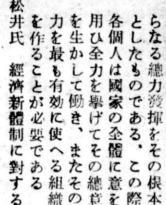 らなる總力發揮をその根本
としたものである、この際
各個人は國家の全體に意を
用ひ全力を擧げてその總意
を生かして働き、またその
力を最も有效に使へる組織
を作ることが必要である
松井氏　經濟新體制に對する